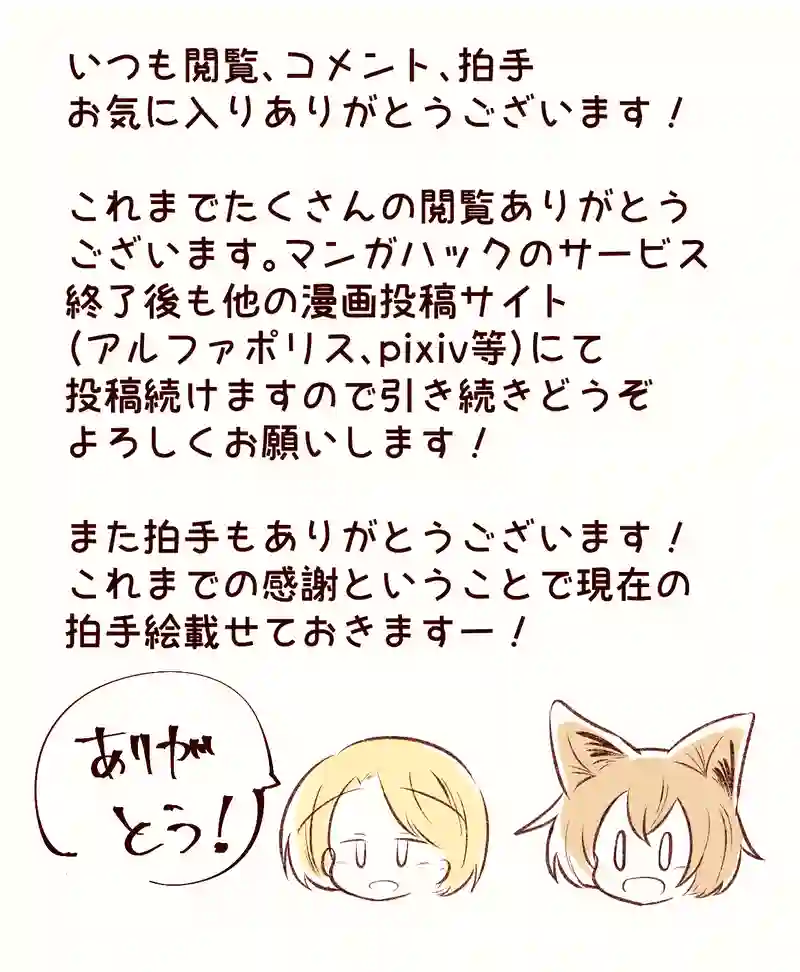 いつも閲覧、コメント、拍手
お気に入りありがとうございます！
これまでたくさんの閲覧ありがとう
ございます。マンガハックのサービス
終了後も他の漫画投稿サイト
(アルファポリス、pixiv等)にて
投稿続けますので引き続きどうぞ
よろしくお願いします！
また拍手もありがとうございます！
これまでの感謝ということで現在の
拍手絵載せておきますー！
ありが
とう！